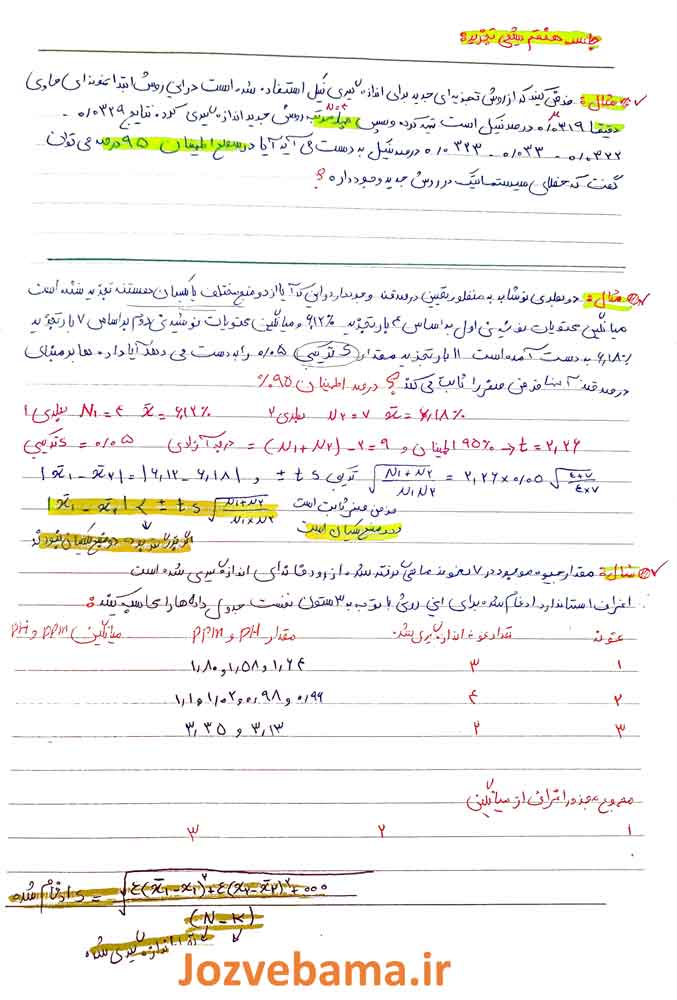 جلسه هفتم شیمی تجزیه
مثال: فرض کنید که از روش تجزیه‌ای جدید برای اندازه گیری نیکل استفاده شده است در این روش ابتدا نمونه‌ای حاوی
دقیقا ۰/۰۳۱۹ درصد نیکل است تهیه کرده و سپس چهار مرتبه روش جدید اندازه گیری کرد. نتایج ۰/۰۳۲۹ -
۰/۰۳۲۲ - ۰/۰۳۳ - ۰/۰۳۲۳ درصد نیکل به دست می آید آیا در سطح اطمینان ۹۵ درصد می توان
گفت که خطای سیستماتیک در روش جدید وجود دارد؟
مثال: دو بطری نوشابه به منظور تعیین درصد قند و جدید از این که آیا از دو منبع مختلف یا یکسان هستند تجزیه شده است
میانگین محتویات نوشیدنی اول بر اساس ۴ بار تجزیه ۶/۱۲٪ و میانگین محتویات نوشیدنی دوم بر اساس ۷ بار تجزیه
۶/۱۸٪ به دست آمده است ۱۱ بار تجزیه مقدار S ترکیبی ۰/۰۵ را به دست می دهد آیا داده ها بر مبنای
درصد قند آنها فرض صفر را ثابت می کند؟ درصد اطمینان ۹۵٪
بطری ۱ N₁ = ۴ x̄ = ۶/۱۲٪ بطری ۲ N₂ = ۷ x̄ = ۶/۱۸٪
۹۵٪ اطمینان و ۹ = ۲ - (N₁ + N₂) = درجه آزادی → t = ۲/۲۶ S ترکیبی = ۰/۰۵
|x̄₁ - x̄₂| = |۶/۱۲ - ۶/۱۸| و ± t s ترکیبی √(N₁+N₂ / N₁N₂) = ۲/۲۶ × ۰/۰۵ √(۴+۷ / ۴×۷)
|x̄₁ - x̄₂| < ± t s √(N₁+N₂ / N₁×N₂) فرض صفر ثابت است
دو منبع یکسان است
اگر بزرگتر بود دو منبع یکسان نبودند
مثال: مقدار جیوه موجود در ۷ نمونه ماهی گرفته شده از رودخانه‌ای اندازه گیری شده است
انحراف استاندارد ادغام شده برای این روش با توجه به ۳ ستون نخست جدول داده ها را محاسبه کنید:
نمونه تعداد نمونه اندازه گیری شده مقدار PH و PPM میانگین PPM و PH
۱ ۳ ۱/۶۴ و ۱/۵۸ و ۱/۸۰
۲ ۴ ۰/۹۶ و ۰/۹۸ و ۱/۰۲ و ۱/۱۰
۳ ۲ ۳/۱۳ و ۳/۳۵
مجموع مجذور انحراف از میانگین
۱ ۲ ۳
S ادغام شده = √(Σ(x̄₁-x₁)² + Σ(x₂-x̄₂)² + ... / (N-K))
اندازه گیری شده
Jozvebama.ir